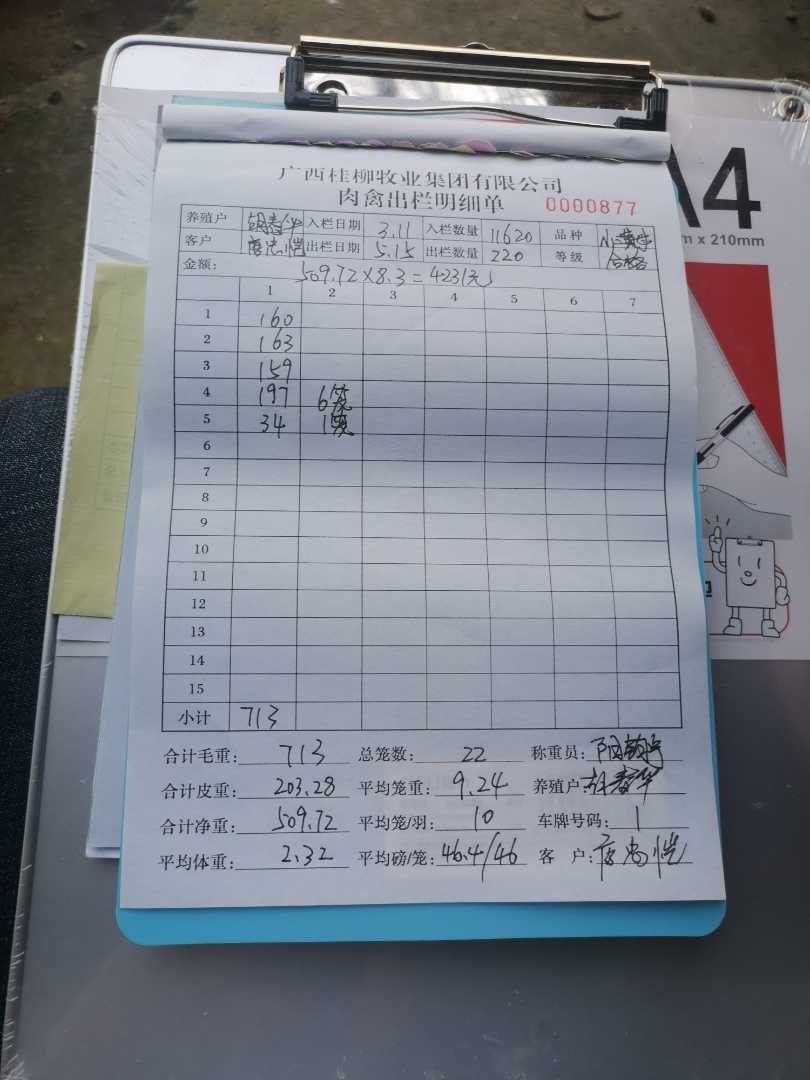 A4
m x 210mm
广西桂柳牧业集团有限公司
肉禽出栏明细单 0000877
养殖户 胡春华 入栏日期 3.11 入栏数量 11620 品种
客户 出栏日期 5.15 出栏数量 220 等级 合格
金额: 509.72×8.3=4231(元)
1 2 3 4 5 6 7
1 160
2 163
3 159
4 197 6笼
5 34 1笼
6
7
8
9
10
11
12
13
14
15
小计 713
合计毛重: 713 总笼数: 22 称重员:
合计皮重: 203.28 平均笼重: 9.24 养殖户: 胡春华
合计净重: 509.72 平均笼/羽: 10 车牌号码: 1
平均体重: 2.32 平均磅/笼: 46.4/46 客 户: